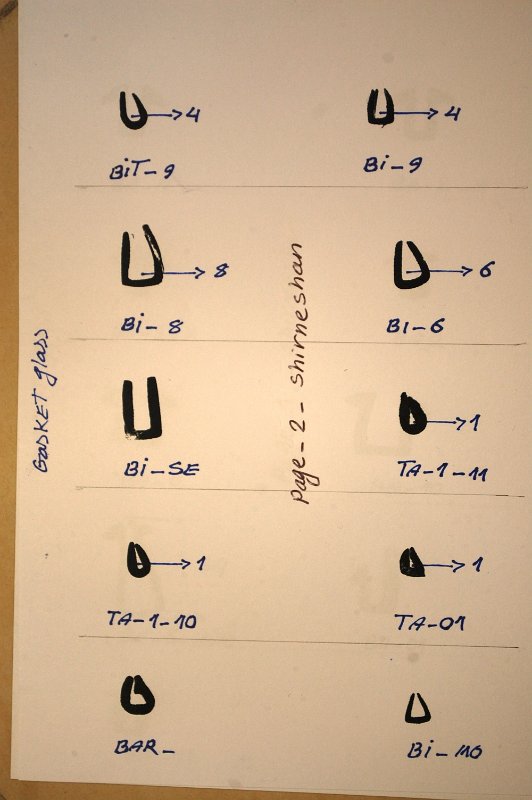 →4
BiT-9
→4
Bi-9
→8
Bi-8
→6
BI-6
Bi-SE
→1
TA-1-11
→1
TA-1-10
→1
TA-01
BAR-
Bi-110
GASKET glass
Page-2-shirneshan